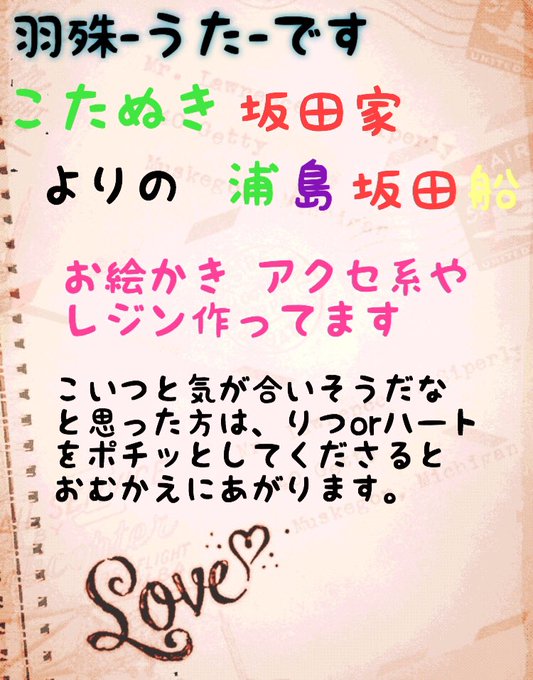 羽殊-うた-です
こたぬき 坂田家
よりの 浦島坂田船
お絵かき アクセ系や
レジン作ってます
こいつと気が合いそうだな
と思った方は、りつorハート
をポチッとしてくださると
おむかえにあがります。
Love